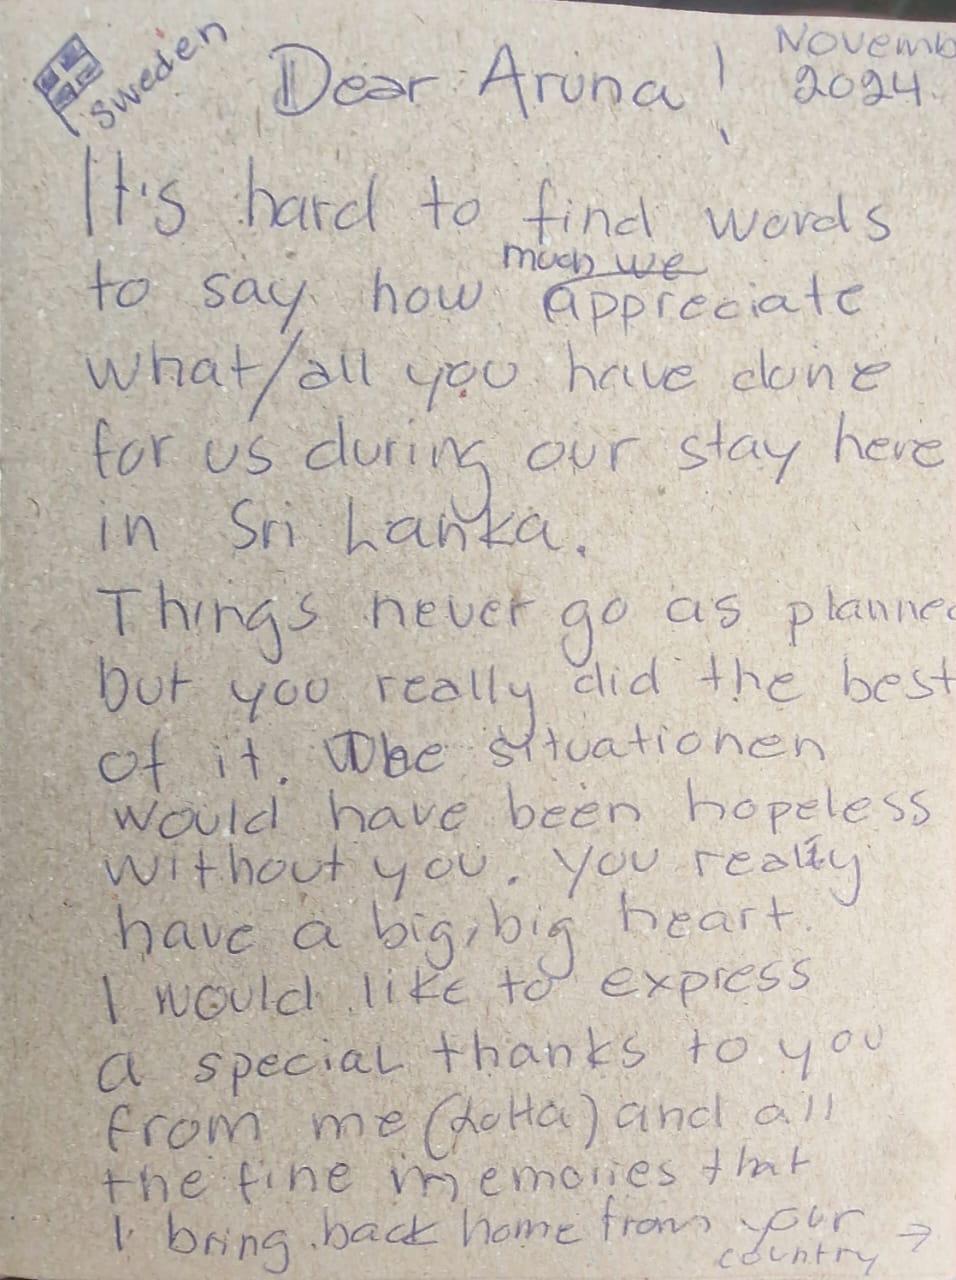 Sweden
Dear Aruna!
Novemb
2024.
It's hard to find words
to say how much we appreciate
what/all you have done
for us during our stay here
in Sri Lanka.
Things never go as planned
but you really did the best
of it. The situationen
would have been hopeless
without you. You really
have a big, big heart.
I would like to express
a special thanks to you
from me (Lotta) and all
the fine memories that
I bring back home from your
country →